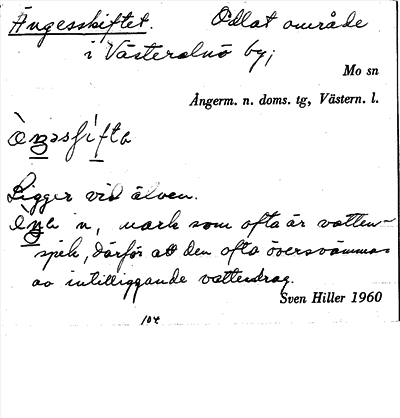 Ängesskiftet. Odlat område
i Västeralnö by;
Mo sn
Ångerm. n. doms. tg, Västern. l.
Ligger vid älven.
n, mark som ofta är vatten-
sjuk, därför att den ofta översvämmas
av intilliggande vattendrag.
Sven Hiller 1960
104